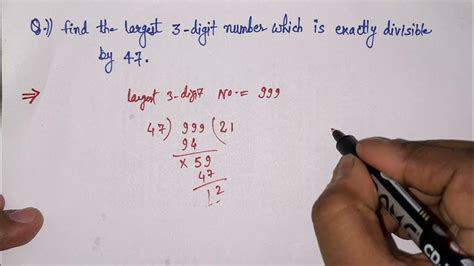 Q.)) find the largest 3-digit number which is exactly divisible
by 47.
⇒ largest 3-digit No. = 999
47) 999 (21
94
× 59
47
12